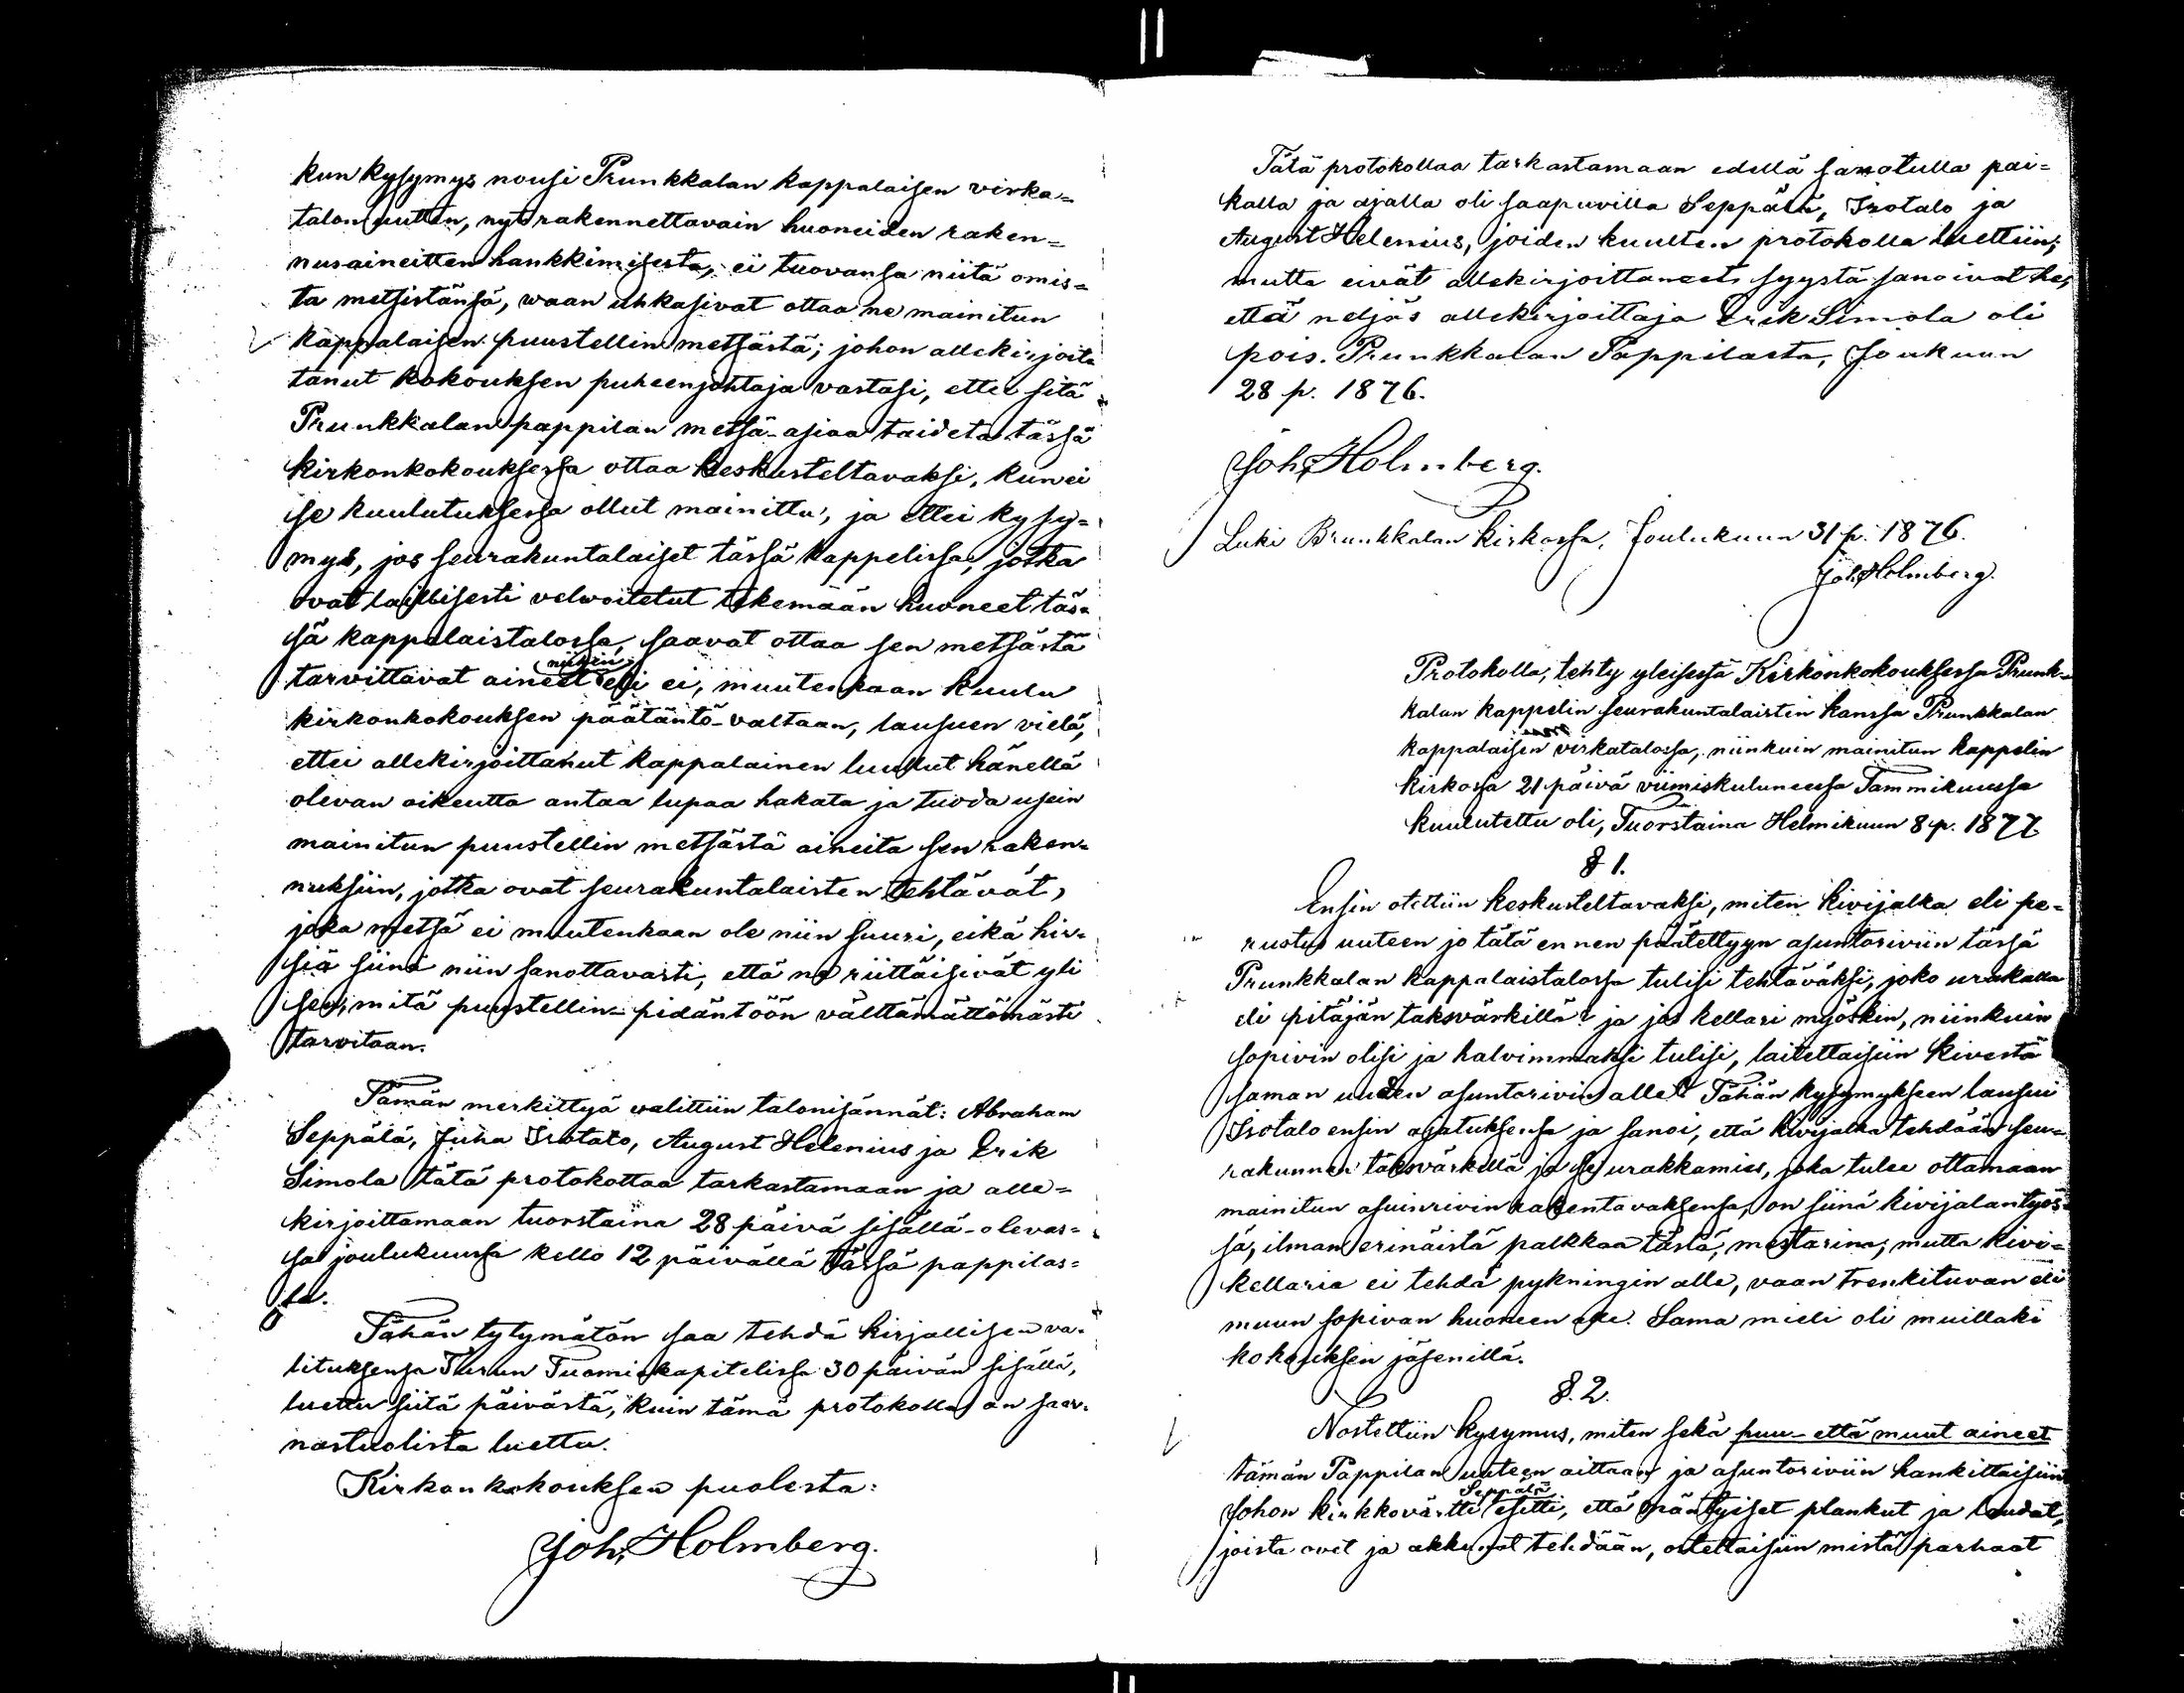 kun kysymys nousi Prunkkalan kappalaisen virka=
talon uutten, nyt rakennettavain huoneiden raken=
nusaineitten hankkimisesta, ei tuovansa niitä omis=
ta metsistänsä, waan uhkasivat ottaa ne mainitun
kappalaisen puustellin metsästä; johon allekirjoit=
tanut kokouksen puheenjohtaja vastasi, ettei sitä
Prunkkalan pappilan metsä-asiaa taideta tässä
kirkonkokouksessa ottaa keskusteltavaksi, kun ei
se kuulutuksessa ollut mainittu, ja ettei kysy=
mys, jos seurakuntalaiset tässä kappelissa, jotka
ovat laillisesti velwoitetut tekemään huoneet täs=
sä kappalaistalossa, saavat ottaa sen metsästä
niihin
tarvittavat aineet eli ei, muutenkaan kuulu
kirkonkokouksen päätäntö-valtaan, lausuen vielä,
ettei allekirjoittanut kappalainen luullut hänellä
olevan oikeutta antaa lupaa hakata ja tuoda usein
mainitun puustellin metsästä aineita sen raken=
nuksiin, jotka ovat seurakuntalaisten tehtävät,
joka metsä ei muutenkaan ole niin suuri, eikä hir=
siä siinä niin sanottavasti, että ne riittäisivät yli
sen, mitä puustellin-pidäntöön välttämättömästi
tarvitaan.
Tämän merkittyä walittiin talonisännät: Abraham
Seppälä, Juha Isotalo, August Helenius ja Erik
Simola tätä protokollaa tarkastamaan ja alle=
kirjoittamaan tuorstaina 28 päivä sisällä-olevas=
sa joulukuussa kello 12 päivällä tässä pappilas=
sa.
Tähän tytymätön saa tehdä kirjallisen va=
lituksensa Turun Tuomiokapitelissa 30 päivän sisällä,
luettu siitä päivästä, kuin tämä protokolla on saar=
nastuolista luettu.
Kirkonkokouksen puolesta:
Joh. Holmberg.
Tätä protokollaa tarkastamaan edellä sanotulla pai=
kalla ja ajalla oli saapuvilla Seppälä, Isotalo ja
August Helenius, joiden kuulten protokolla luettiin;
mutta eivät allekirjoittaneet, syystä sanoivat he,
että neljäs allekirjoittaja Erik Simola oli
pois. Prunkkalan Pappilasta, Joukuun
28 p. 1876.
Joh. Holmberg.
Luki Brunkkalan kirkossa, Joulukuun 31 p. 1876.
Joh. Holmberg.
Protokolla, tehty yleisessä Kirkonkokouksessa Prunk=
kalan kappelin seurakuntalaisten kanssa Prunkkalan
kappalaisen virkatalossa, niinkuin mainitun kappelin
kirkossa 21 päivä viimiskuluneessa Tammikuussa
kuulutettu oli, Tuorstaina Helmikuun 8 p. 1877
§ 1.
Ensin otettiin keskusteltavaksi, miten kivijalka eli pe=
rustus uuteen jo tätä ennen päätettyyn asuntoriviin tässä
Prunkkalan kappalaistalossa tulisi tehtäväksi, joko urakalla
eli pitäjän taksvärkillä? ja jos kellari myöskin, niinkuin
sopivin olisi ja halvimmaksi tulisi, laitettaisiin kivestä
saman uuden asuntorivin alle? Tähän kysymykseen lausui
Isotalo ensin ajatuksensa ja sanoi, että kivijalka tehdään seu=
rakunnan taksvärkillä ja se urakkamies, joka tulee ottamaan
mainitun asuinrivin rakentavaksensa, on siinä kivijalantyös=
sä, ilman erinäistä palkkaa tästä, mestarina; mutta kivi=
kellaria ei tehdä pykningin alle, vaan trenkituvan eli
muun sopivan huoneen alle. Sama mieli oli muillaki
kokouksen jäsenillä.
§. 2.
Nostettiin kysymus, miten sekä puu- että muut aineet
tämän Pappilan uuteen aittaan ja asuntoriviin hankittaisiin
Seppälä
Johon kirkkovärtti esitti, että mäntyiset plankut ja laudat,
joista ovet ja akkunat tehdään, ostettaisiin mistä parhaat